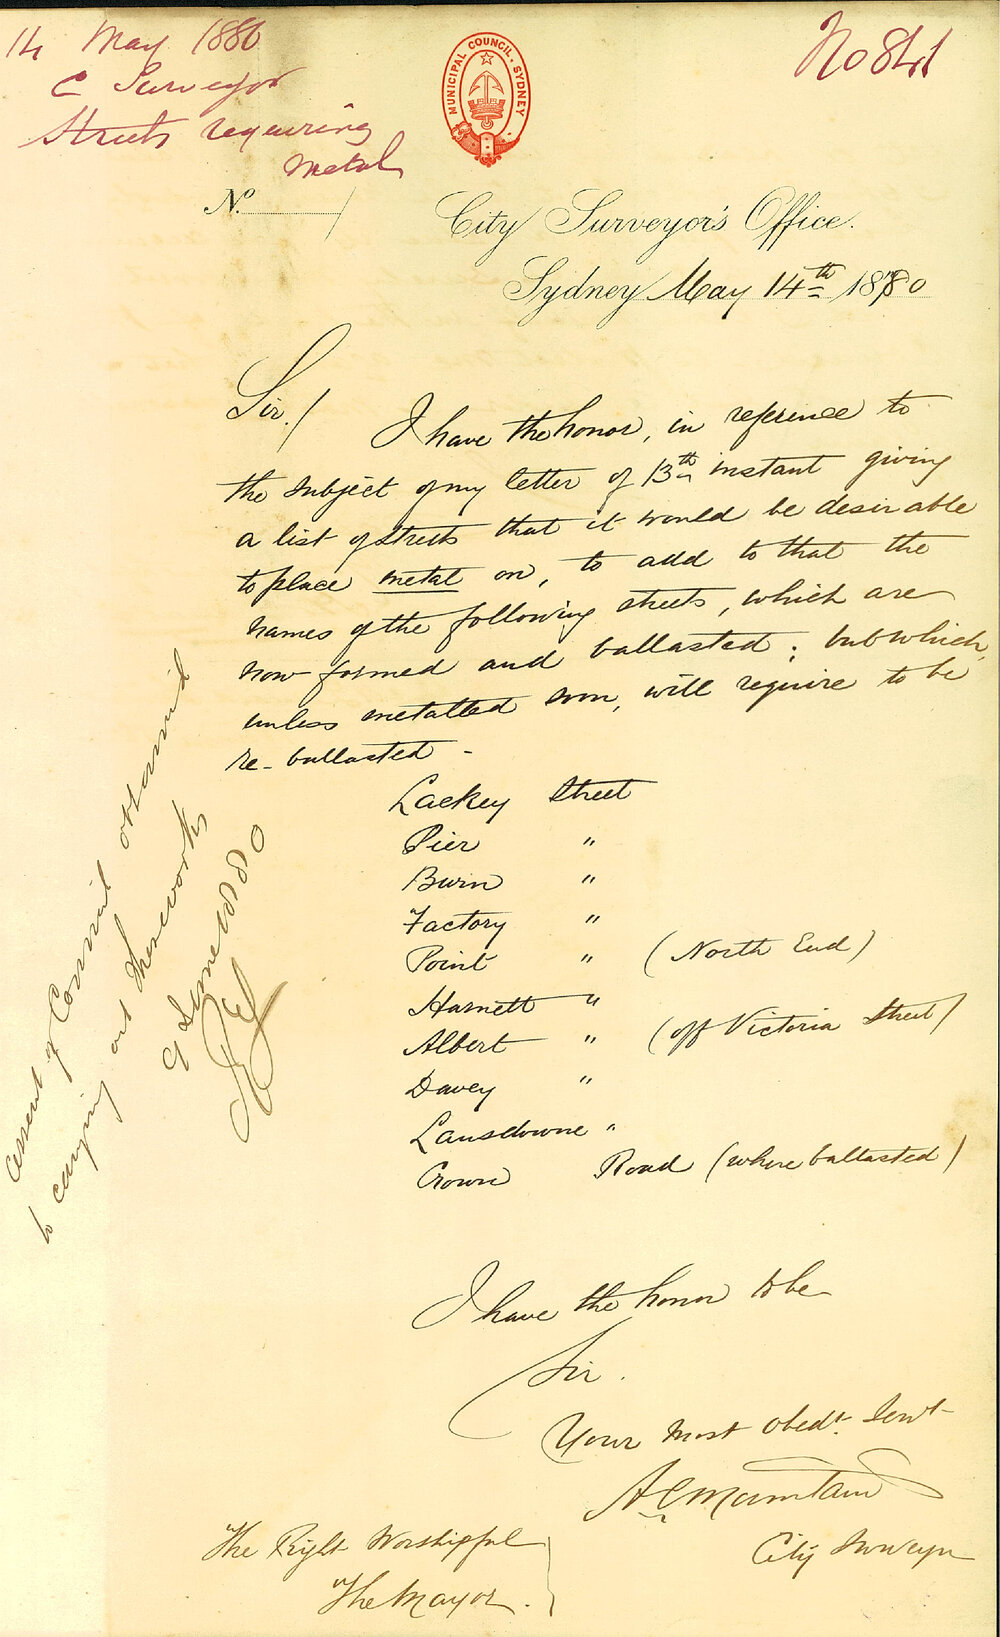 14 May 1880
C Surveyor
Streets requiring
metal
No 841
MUNICIPAL COUNCIL. SYDNEY
No.
City Surveyor's Office.
Sydney May 14th 1880
Sir/ I have the honor, in reference to
the subject of my letter of 13th instant giving
a list of streets that it would be desirable
to place metal on, to add to that the
names of the following streets, which are
now formed and ballasted; but which,
unless metalled soon, will require to be
re-ballasted -
Lackey Street
Pier "
Burn "
Factory "
Point " (North End)
Harnett "
Albert " (off Victoria Street)
Davey "
Lansdowne "
Crown Road (where ballasted)
I have the honor to be
Sir.
Your most obedt. Servt
A C Mountain
City Surveyor
The Right Worshipful
The Mayor.
Assent of Council obtained
to carrying out these works
9 June 1880